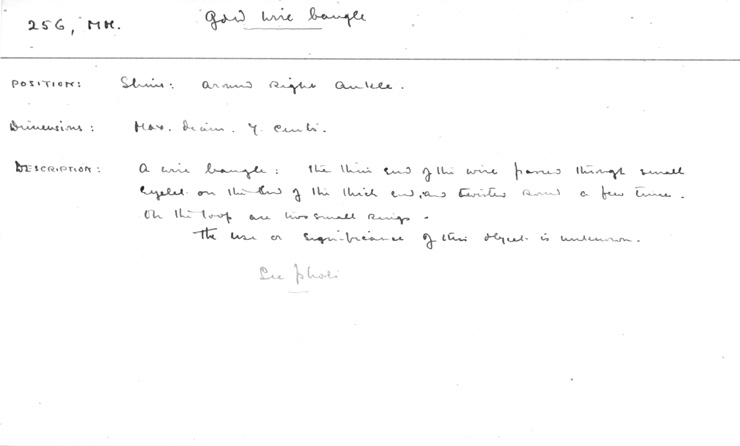 256, MM.
Gold wire bangle
POSITION: Shins: around right ankle.
Dimensions: Max. diam. 7. cents.
DESCRIPTION: A wire bangle: the thin end of the wire passed through small
eyelet on the end of the thick end, and twisted round a few times.
On the loop are two small rings.
The use or significance of this object is unknown.
See photo